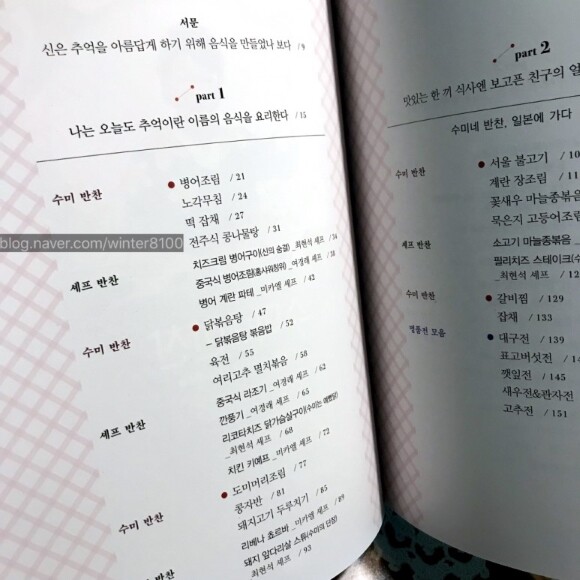 서문
신은 추억을 아름답게 하기 위해 음식을 만들었나 보다 / 9
part 1
나는 오늘도 추억이란 이름의 음식을 요리한다 / 15
수미 반찬
병어조림 / 21
노각무침 / 24
떡 잡채 / 27
전주식 콩나물탕 / 31
셰프 반찬
치즈크림 병어구이(신의 술결)_최현석 셰프 / 34
중국식 병어조림(홍사위청위)_여경래 셰프 / 38
병어 계란 파테 _미카엘 셰프 / 42
수미 반찬
닭볶음탕 / 47
– 닭볶음탕 볶음밥 / 52
육전 / 55
여리고추 멸치볶음 / 58
셰프 반찬
중국식 라조기 _여경래 셰프 / 62
깐풍기 _여경래 셰프 / 65
리코타치즈 닭가슴살구이(수미는 예뻤닭)
_최현석 셰프 / 68
치킨 키예프 _미카엘 셰프 / 72
수미 반찬
도미머리조림 / 77
콩자반 / 81
돼지고기 두루치기 / 85
리베나 쵸르바 _미카엘 셰프 / 89
돼지 앞다리살 스튜(수미의 단장)
_최현석 셰프 / 93
part 2
맛있는 한 끼 식사엔 보고픈 친구의 얼
수미네 반찬, 일본에 가다
수미 반찬
서울 불고기 / 10
계란 장조림 / 11
꽃새우 마늘종볶음
묵은지 고등어조림
셰프 반찬
소고기 마늘종볶음
필리치즈 스테이크(
_최현석 셰프 / 12
수미 반찬
갈비찜 / 129
잡채 / 133
명품전 모음
대구전 / 139
표고버섯전 /
깻잎전 / 145
새우전&관자전
고추전 / 151
blog.naver.com/winter8100